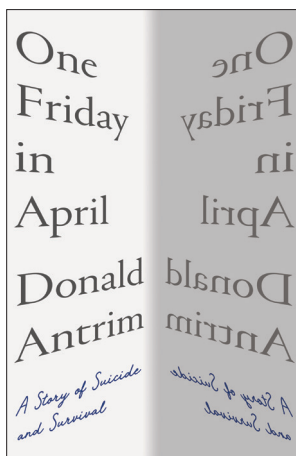 One
Friday
in
April
Donald
Antrim
A Story of Suicide
and Survival
One
Friday
in
April
Donald
Antrim
A Story of Suicide
and Survival